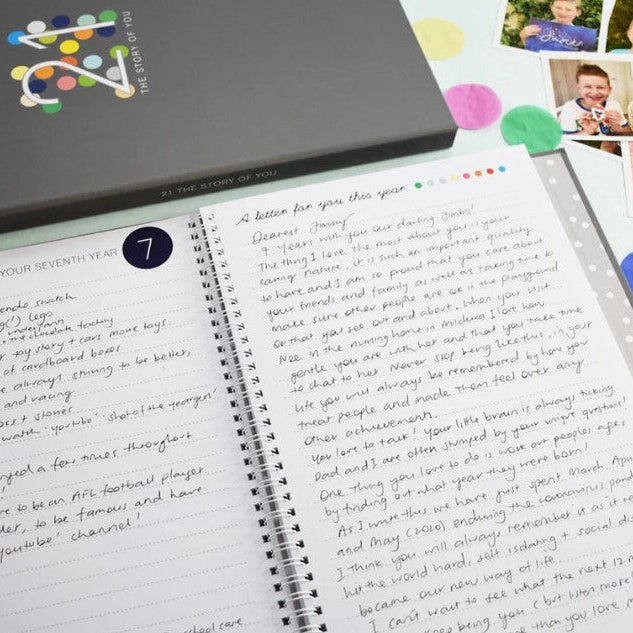 21
THE STORY OF YOU
21 THE STORY OF YOU
YOUR SEVENTH YEAR 7
lego
the chocolate factory
toy story + cars movie toys
of cardboard boxes
always striving to be better,
and racing
+ stories
watch 'youtube' 'shot of the year
a few times throughout
to be an AFL football player
to be famous and have
youtube' channel!
school care
A letter for you this year
Dearest Jimmy
7 years with you our darling Jimbo!
The thing I love the most about you is your
caring nature, it is such an important quality
to have and I am so proud that you care about
your friends and family as well as taking time to
make sure other people are ok in the playground
or that you see out and about. When you visit
Nee in the nursing home in Mildura I love how
gentle you are with her and that you take time
to chat to her. Never stop being like this, in your
life you will always be remembered by how you
treat people and made them feel over any
other achievement.
You love to talk! Your little brain is always ticking.
Dad and I are often stumped by your unique questions!
One thing you love to do is work out peoples ages
by finding out what year they were born!
As I write this we have just spent March, April
and May (2020) enduring the coronavirus
I think you will always remember it as it
hit the world hard, self isolation + social
became our new way of life.
I can't wait to see what the next 12
being you (but listen more
than you love